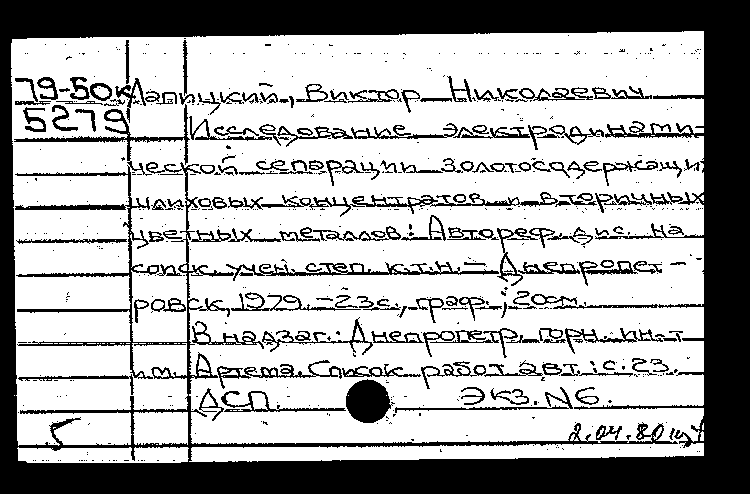 79-50к Лапицкий, Виктор Николаевич
5279 Исследование электродинами-
ческой сепарации золотосодержащих
шлиховых концентратов и вторичных
цветных металлов: Автореф. дис. на
соиск. учен. степ. к.т.н. — Днепропет-
ровск, 1979. - 23 с., граф.; 20 см.
В надзаг.: Днепропетр. горн. ин-т
им. Артема. Список работ авт.: с. 23.
ДСП. Экз. N6.
5 2.04.80